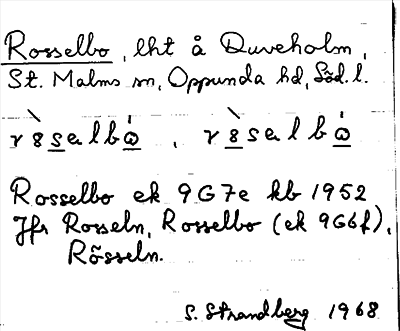 Rosselbo, lht å Duveholm,
St. Malms sn, Oppunda hd, Söd. l.
r8̀selbò̱, r8̀selbò̱
Rosselbo ek 9G7e kb 1952
Jfr Rosseln, Rosselbo (ek 9G6f),
Rösseln.
S. Strandberg 1968